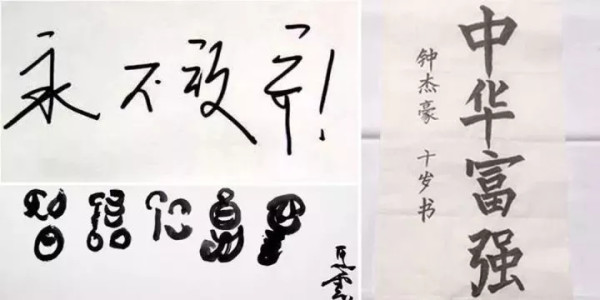 永不放弃!
馬雲
中华富强
钟杰豪 十岁书